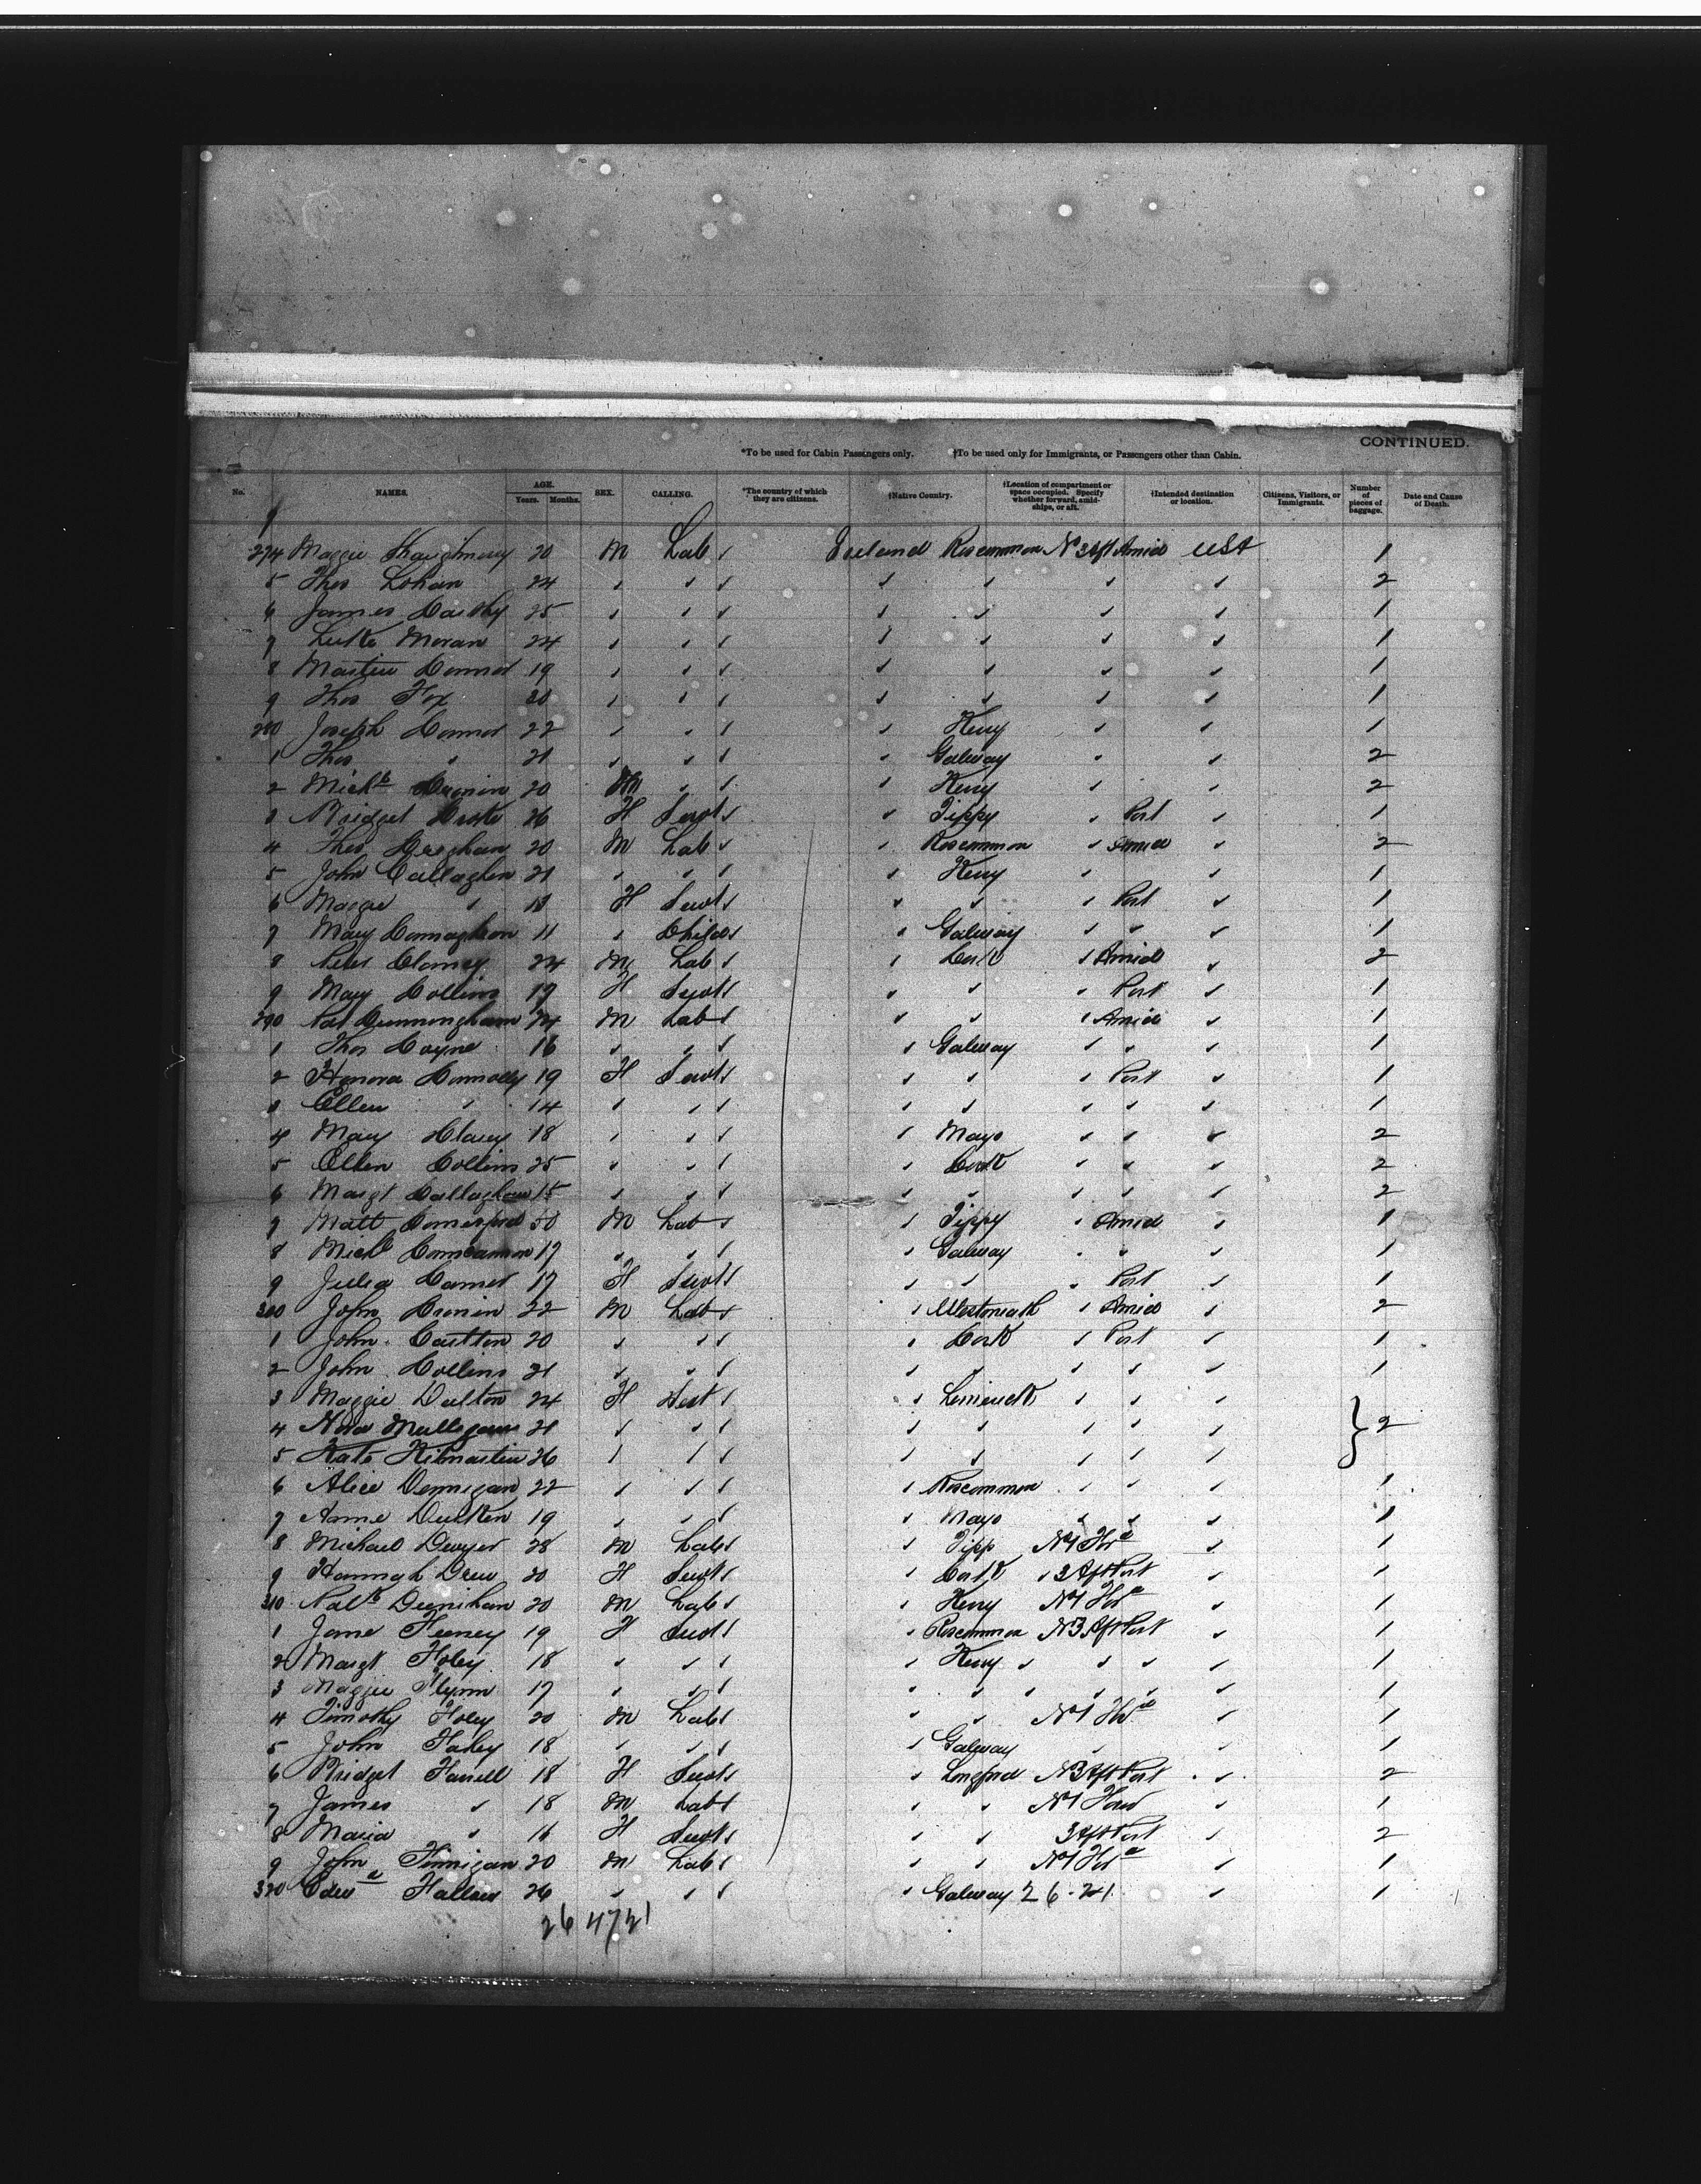 CONTINUED.
*To be used for Cabin Passengers only. †To be used only for Immigrants, or Passengers other than Cabin.
No. NAMES. AGE. Years. Months. SEX. CALLING. *The country of which they are citizens. †Native Country. †Location of compartment or space occupied. Specify whether forward, amidships, or aft. †Intended destination or location. Citizens, Visitors, or Immigrants. Number of pieces of baggage. Date and Cause of Death.
274 Maggie 20 M Lab Ireland Roscommon Amid USA 1
5 Thos Lohan 24 2
6 James 25 1
7 Luke Moran 24 1
8 Martin Connor 19 1
9 Thos Fox 20 1
280 Joseph Connor 22 Kerry 1
1 Thos 21 Galway 2
2 Mich Cronin 20 M Kerry 2
3 Bridget 26 F Servt Tippy Port 1
4 Thos 20 M Lab Roscommon Amid 2
5 John Callaghan 21 Kerry 1
6 Maggie F Servt Port 1
7 Mary 11 Child Galway 1
8 Peter Clancy 24 M Lab Cork Amid 2
9 Mary Collins 19 F Servt Port 1
290 Pat Cunningham 24 M Lab Amid 1
1 Thos Coyne 16 Galway 1
2 Honora Connolly 19 F Servt Port 1
3 Ellen 14 1
4 Mary 18 Mayo 2
5 Ellen Collins 25 Cork 2
6 Margt Callaghan 15 2
7 Matt 50 M Lab Tippy Amid 1
8 Mich 17 Galway 1
9 Julia 17 F Servt Port 1
300 John Cronin 22 M Lab Westmeath Amid 2
1 John 20 Cork Port 1
2 John Collins 21 1
3 Maggie Dalton 24 F Limerick
4 Nora Mulligan 21 2
5 Kate Kilmartin 26
6 Alice Dennigan 22 Roscommon 1
7 Anne Durken 19 Mayo 1
8 Michael Dwyer 28 M Lab Tipp No 1 Ford 1
9 Hannah Drew 20 F Servt Cork 3 Aft Port 1
310 Patk Deenihan 20 M Lab Kerry No 1 Ford 1
1 Jane Feeney 19 F Servt Roscommon No 3 Aft Port 1
2 Margt Foley 18 Kerry 1
3 Maggie Flynn 17 1
4 Timothy Foley 20 M Lab No 1 Ford 1
5 John Fahey 18 Galway 1
6 Bridget Farrell 18 F Servt Longford No 3 Aft Port 2
7 James 18 M Lab No 1 Ford 1
8 Maria 16 F Servt 3 Aft Port 2
9 John Finnigan 20 M Lab No 1 Ford 1
320 Edwd Fallon 26 Galway 26-21 1
26 47 21